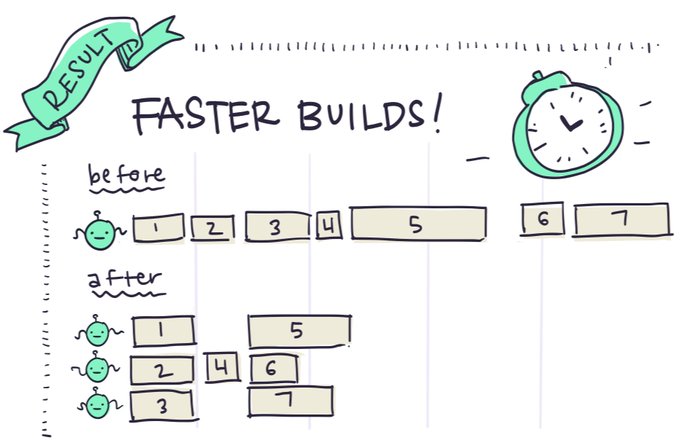 RESULT
FASTER BUILDS!
before
1 2 3 4 5 6 7
after
1 5
2 4 6
3 7